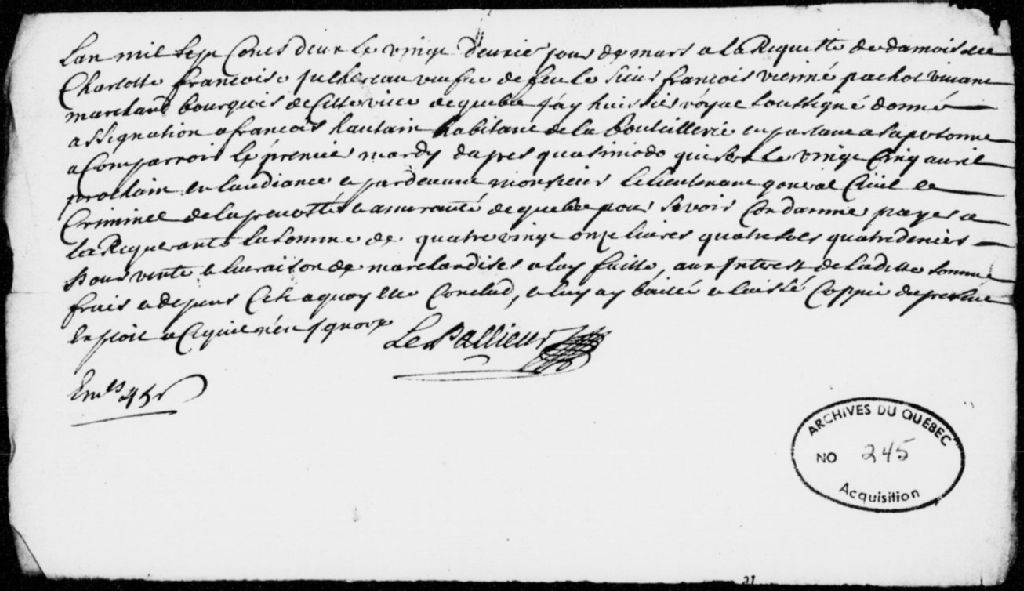 Lan mil Sept Cents deux Le vingt deuxie jour de mars a la Requeste de damoiselle
Charlotte francoise juchereau veufve de feu le Sieur francois vienné pachot vivant
marchand bourgeois de Cette ville de quebec jay huissier royal soussigné donné
assignation a francois hautain habitant de la bouteillerie en parlant a sa personne
a Comparroir le premier mardy dapres quasimodo qui sera le vingt Cinq auril
prochain en laudiance e pardeuant monsieur Le lieutenant general Ciuil et
Criminel de la preuosté e amirauté de quebec pour se voir Condamné payer a
la Requerante la Somme de quatre vingt onze liures quatre sols quatre deniers
pour vente e liuraison de marchandises a luy faitte, aux Interest de ladite Somme
frais e depens Ce a quoy elle Conclud, e luy ay baillé e laissé Coppie du present
Exploit a Ce quil nen Ignore
Le Pallieur
Em.ts 45s
ARCHIVES DU QUÉBEC
NO 245
Acquisition